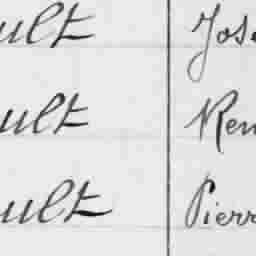 ult Jose
ult Ren
ult Pierr